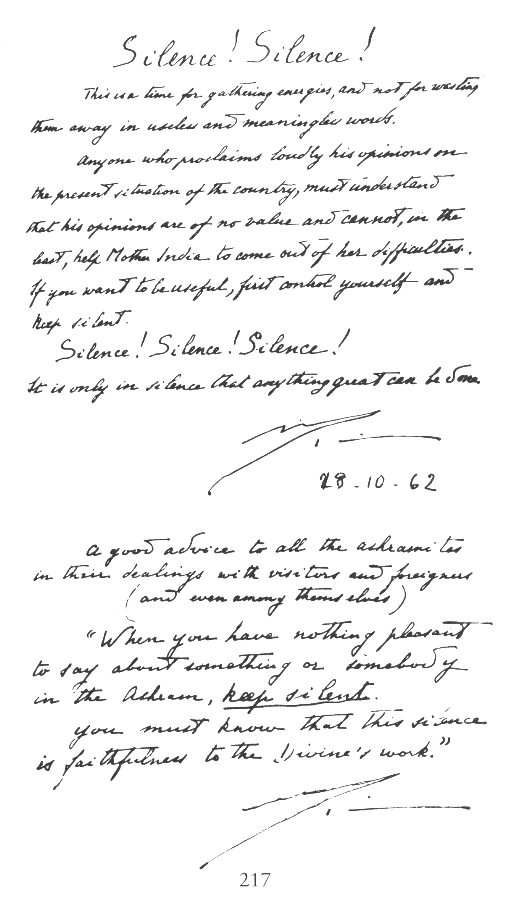 Silence! Silence!
This is a time for gathering energies, and not for wasting
them away in useless and meaningless words.
Anyone who proclaims loudly his opinions on
the present situation of the country, must understand
that his opinions are of no value and cannot, in the
least, help Mother India to come out of her difficulties.
If you want to be useful, first control yourself and
keep silent.
Silence! Silence! Silence!
It is only in silence that anything great can be done.
28-10-62
A good advice to all the ashramites
in their dealings with visitors and foreigners
(and even among themselves)
"When you have nothing pleasant
to say about something or somebody
in the Ashram, keep silent.
you must know that this silence
is faithfulness to the Divine's work."
217